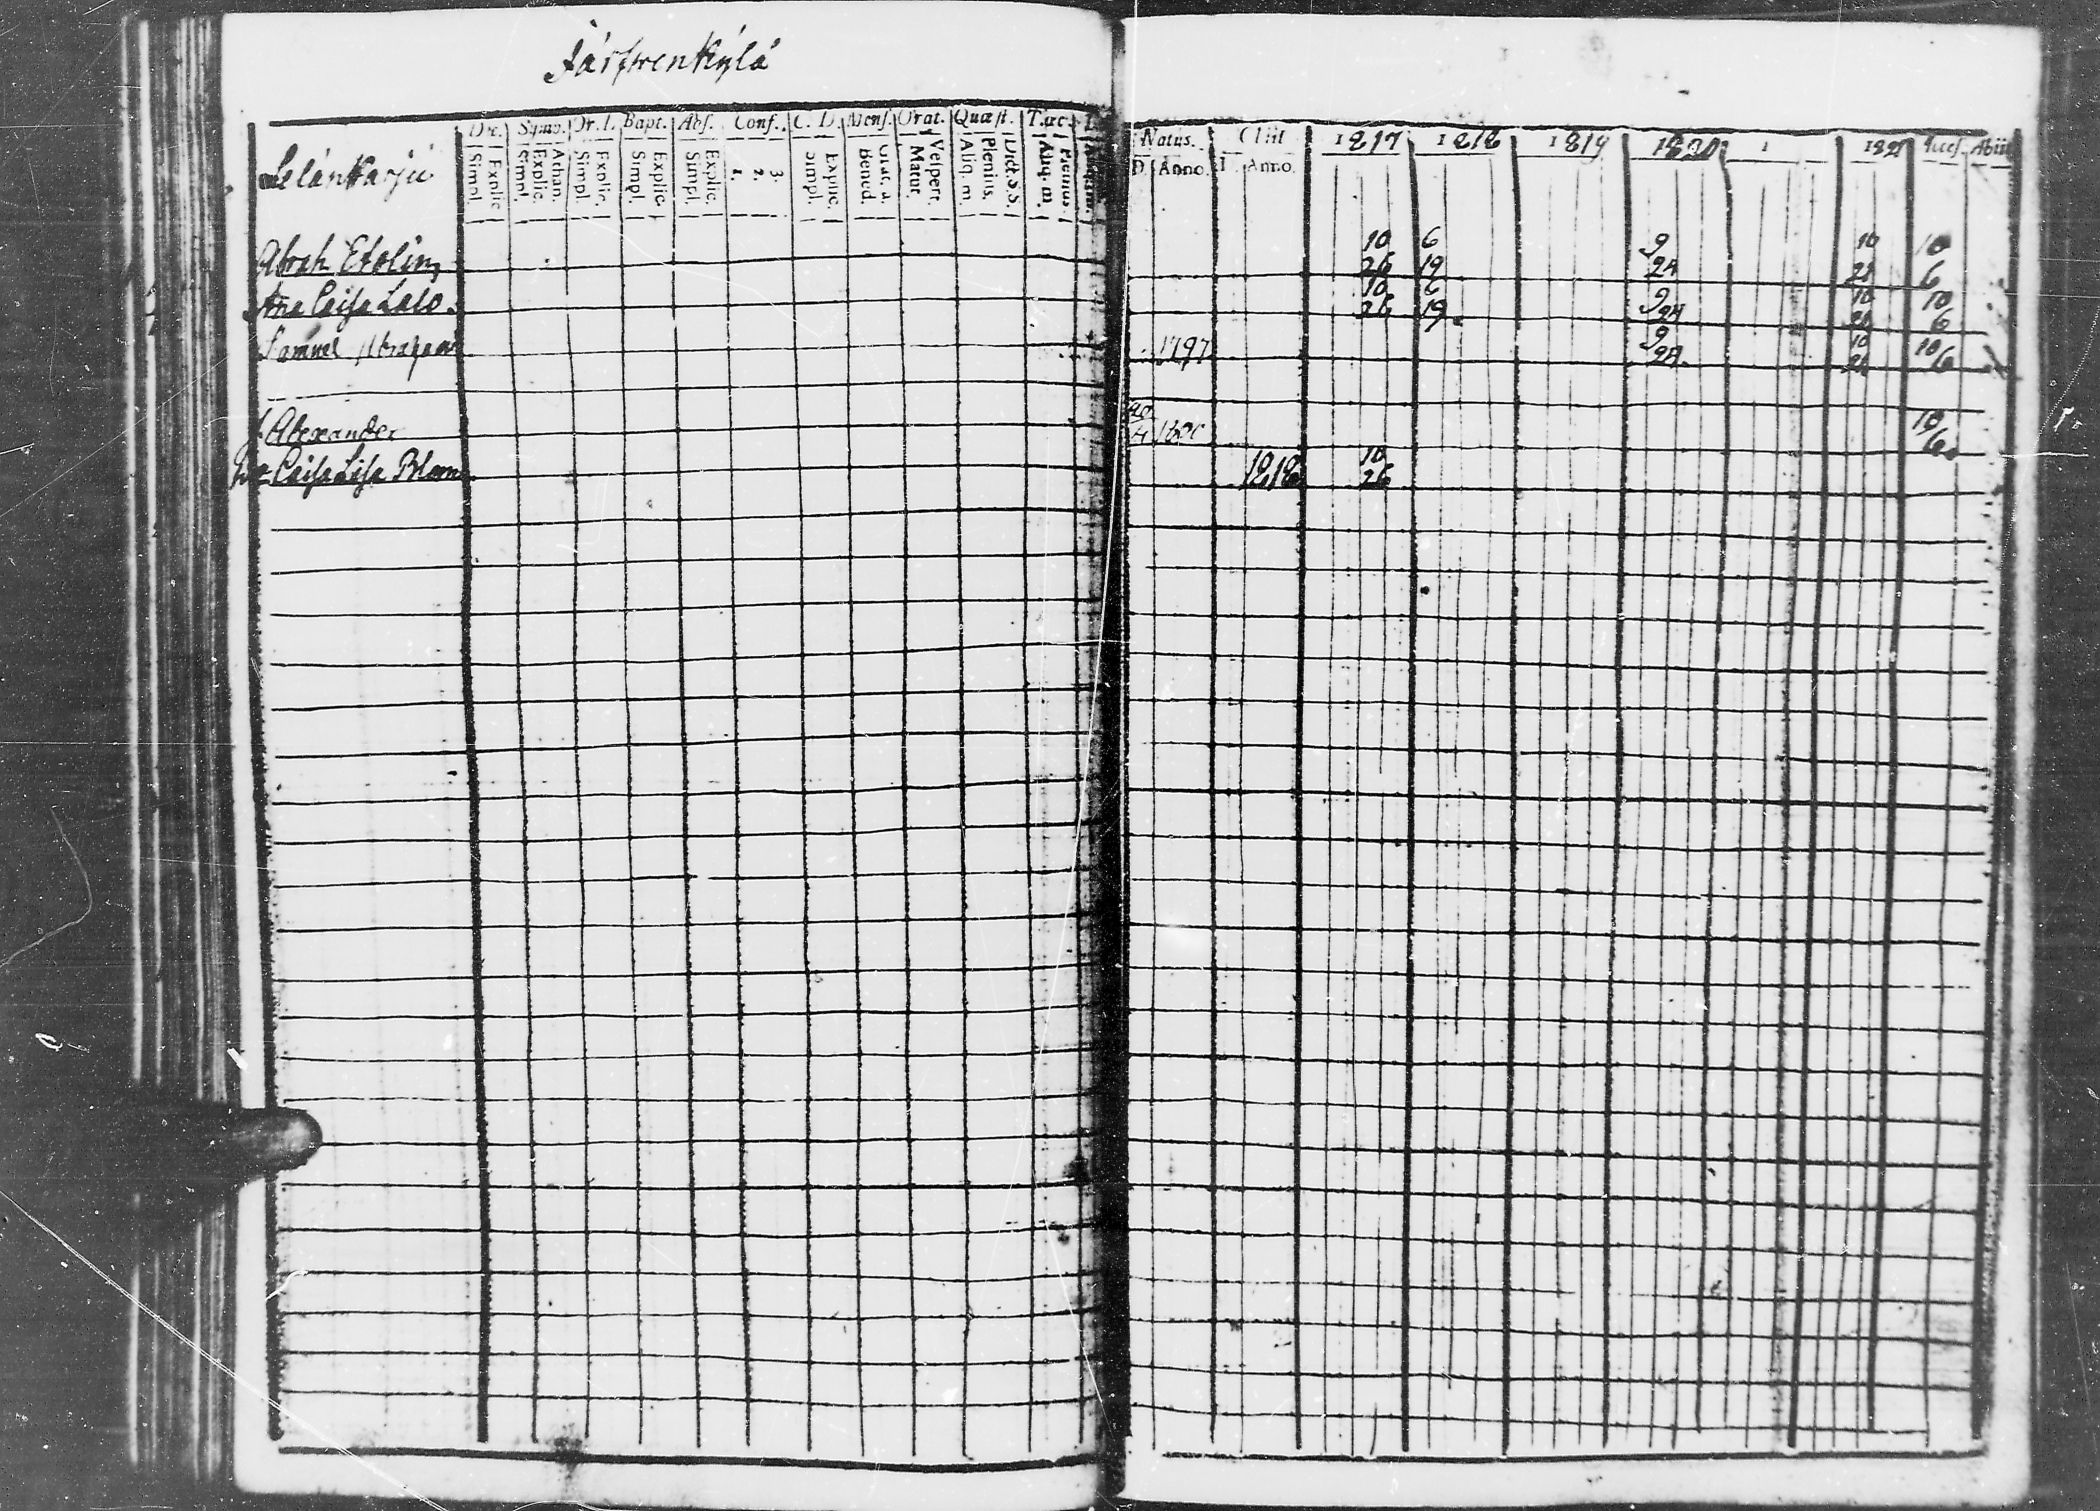 Järfwenkylä
Dec. Symb. Or. D. Bapt. Abs. Conf. C. D. Mens. Orat. Quæst. T. œc.
Natus. Obiit 1817 1818 1819 1820 1 1821 Acces. Abiit
Simpl. Explic. Simpl. Explic. Athan. Simpl. Explic. Simpl. Explic. Simpl. Explic. 1. 2. 3. Simpl. Explic. Bened. Grat. a. Matut. Vespert. Aliq. m. Plenius. Dict. S.S. Aliq. m. Plenius.
D. Anno. D. Anno.
Abrah Etolin 10 26 6 19 9 24 10 21 10 6
Caisa 10 26 6 19 9 24 10 21 10 6
Samuel 1797 9 24 10 21 10 6
Alexander 1800 10 6
Caisa Lisa Blom 1818 10 26